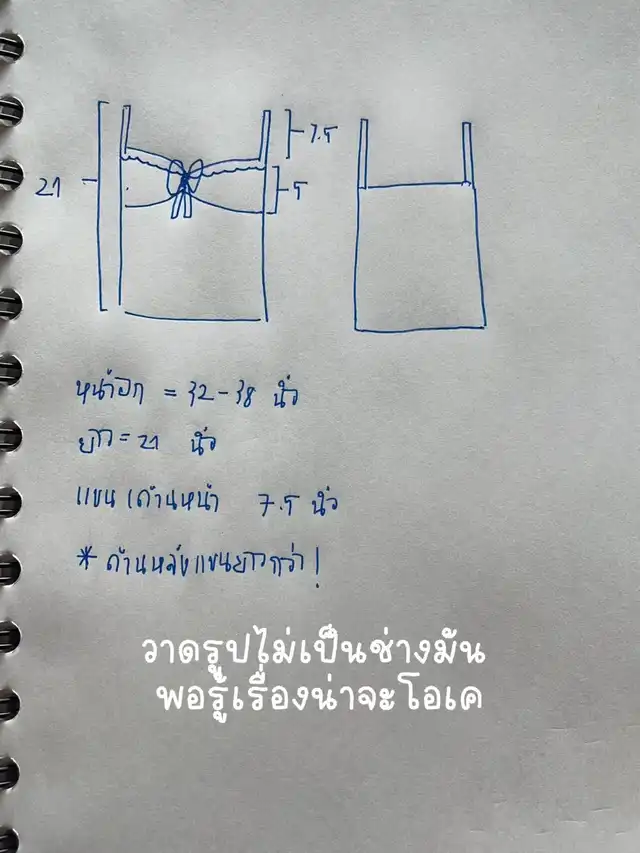 7.5
21
5
หน้าอก = 32-38 นิ้ว
ยาว = 21 นิ้ว
แขนด้านหน้า 7.5 นิ้ว
* ด้านหลังแขนยาวกว่า!
วาดรูปไม่เป็นช่างมัน
พอรู้เรื่องน่าจะโอเค